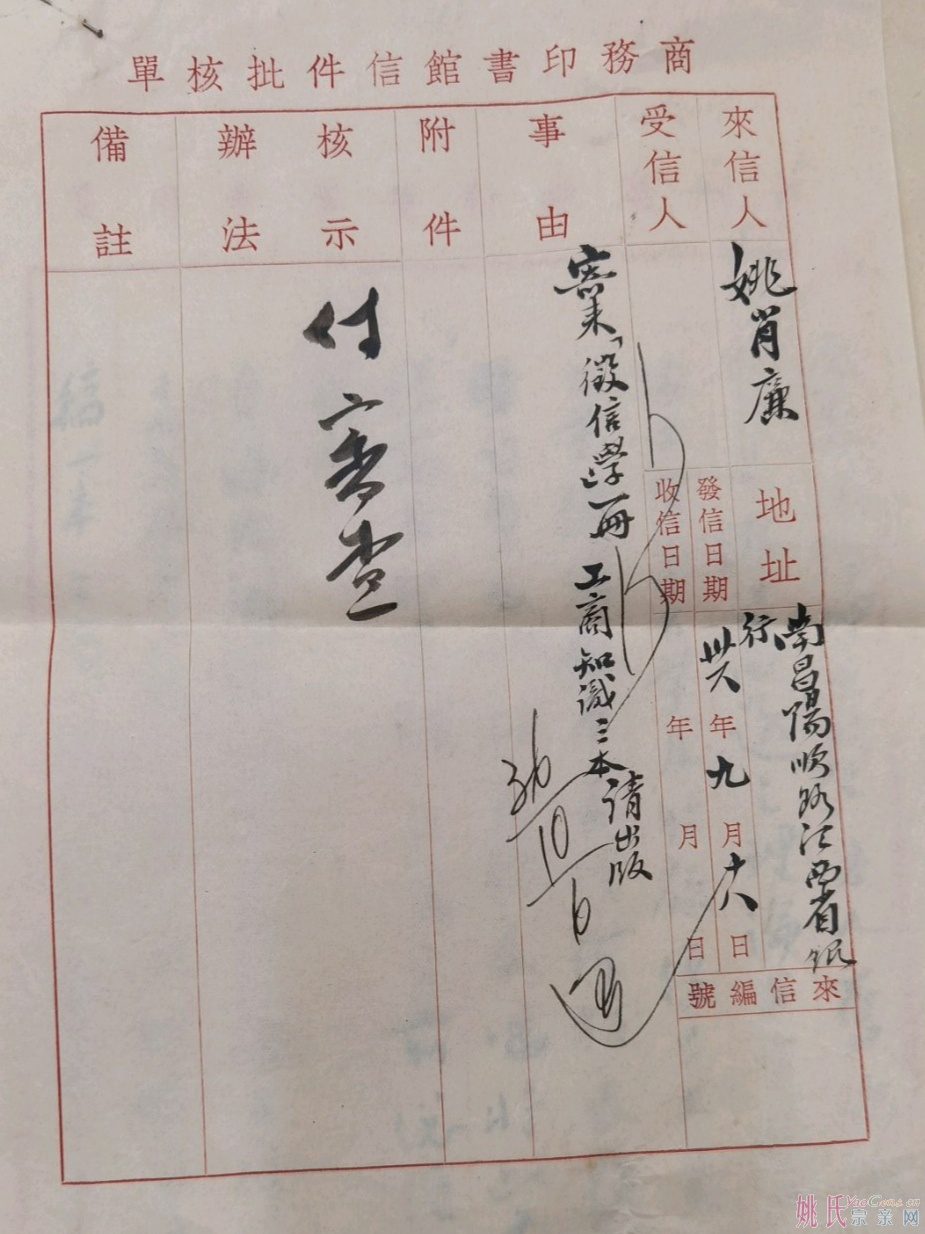 商務印書館信件批核單
來信人
姚肖廉
地址
南昌陽明路江西省銀
行
發信日期
卅六年九月十八日
收信日期
年 月 日
來信編號
受信人
事由
寄来「徵信學」一冊 工商知識三本 請出版
36/10/6
附件
核示
辦法
付審查
備註
姚氏宗亲网
YaoGens.cn